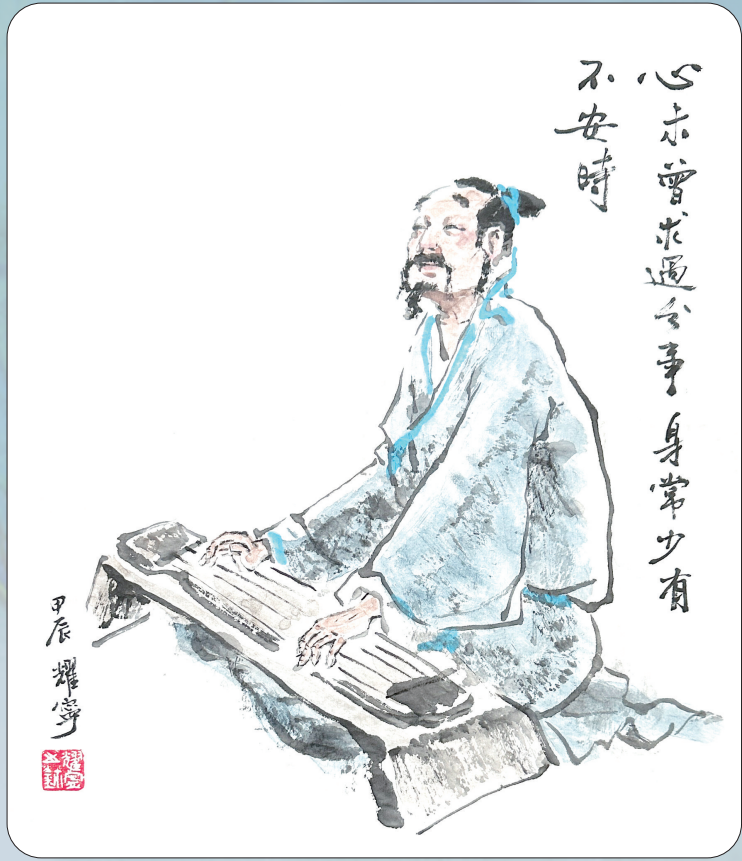 心未曾求過分事 身常少有
不安時
甲辰 耀寧